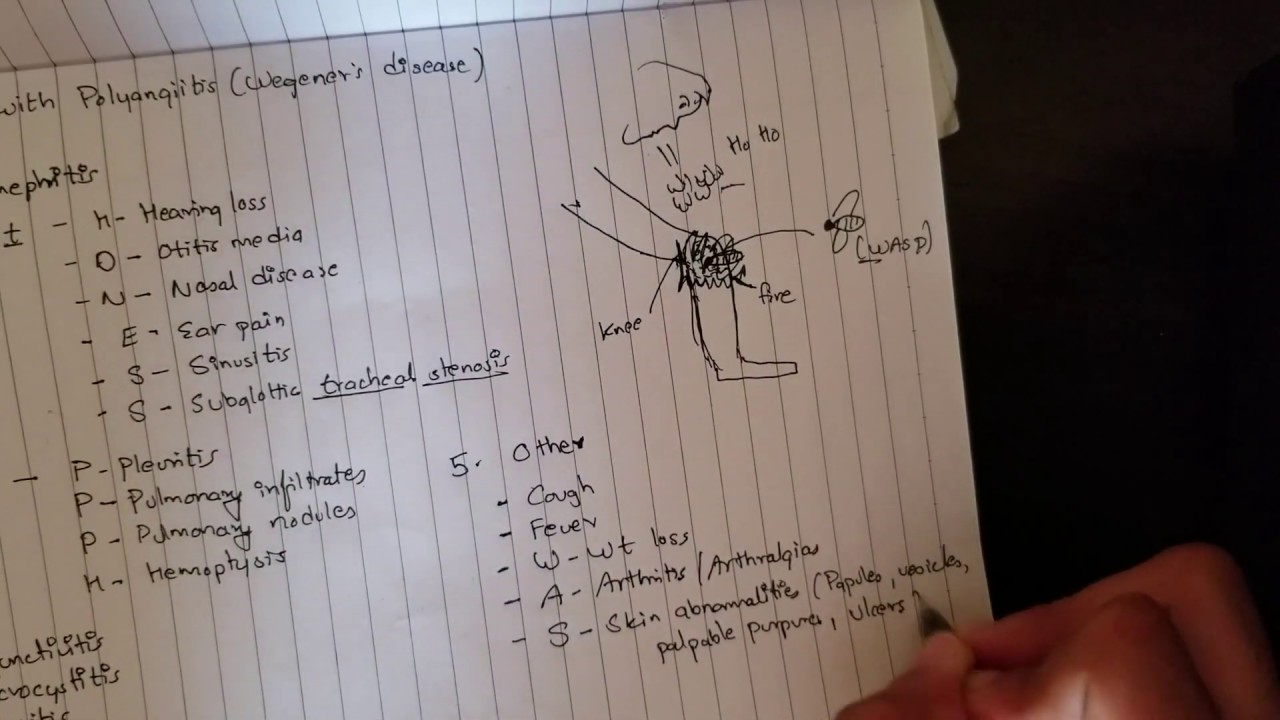 with Polyangiitis (Wegener's disease)
nephritis
I - H- Hearing loss
- O - Otitis media
- N - Nasal disease
- E - Ear pain
- S - Sinusitis
- S - Subglottic tracheal stenosis
- P - Pleuritis
P - Pulmonary infiltrates
P - Pulmonary nodules
H - Hemoptysis
Ho Ho
(WASP)
fire
Knee
5. Other
- Cough
- Fever
- W - Wt loss
- A - Arthritis / Arthralgias
- S - Skin abnormalities (Papules, vesicles,
palpable purpura, ulcers